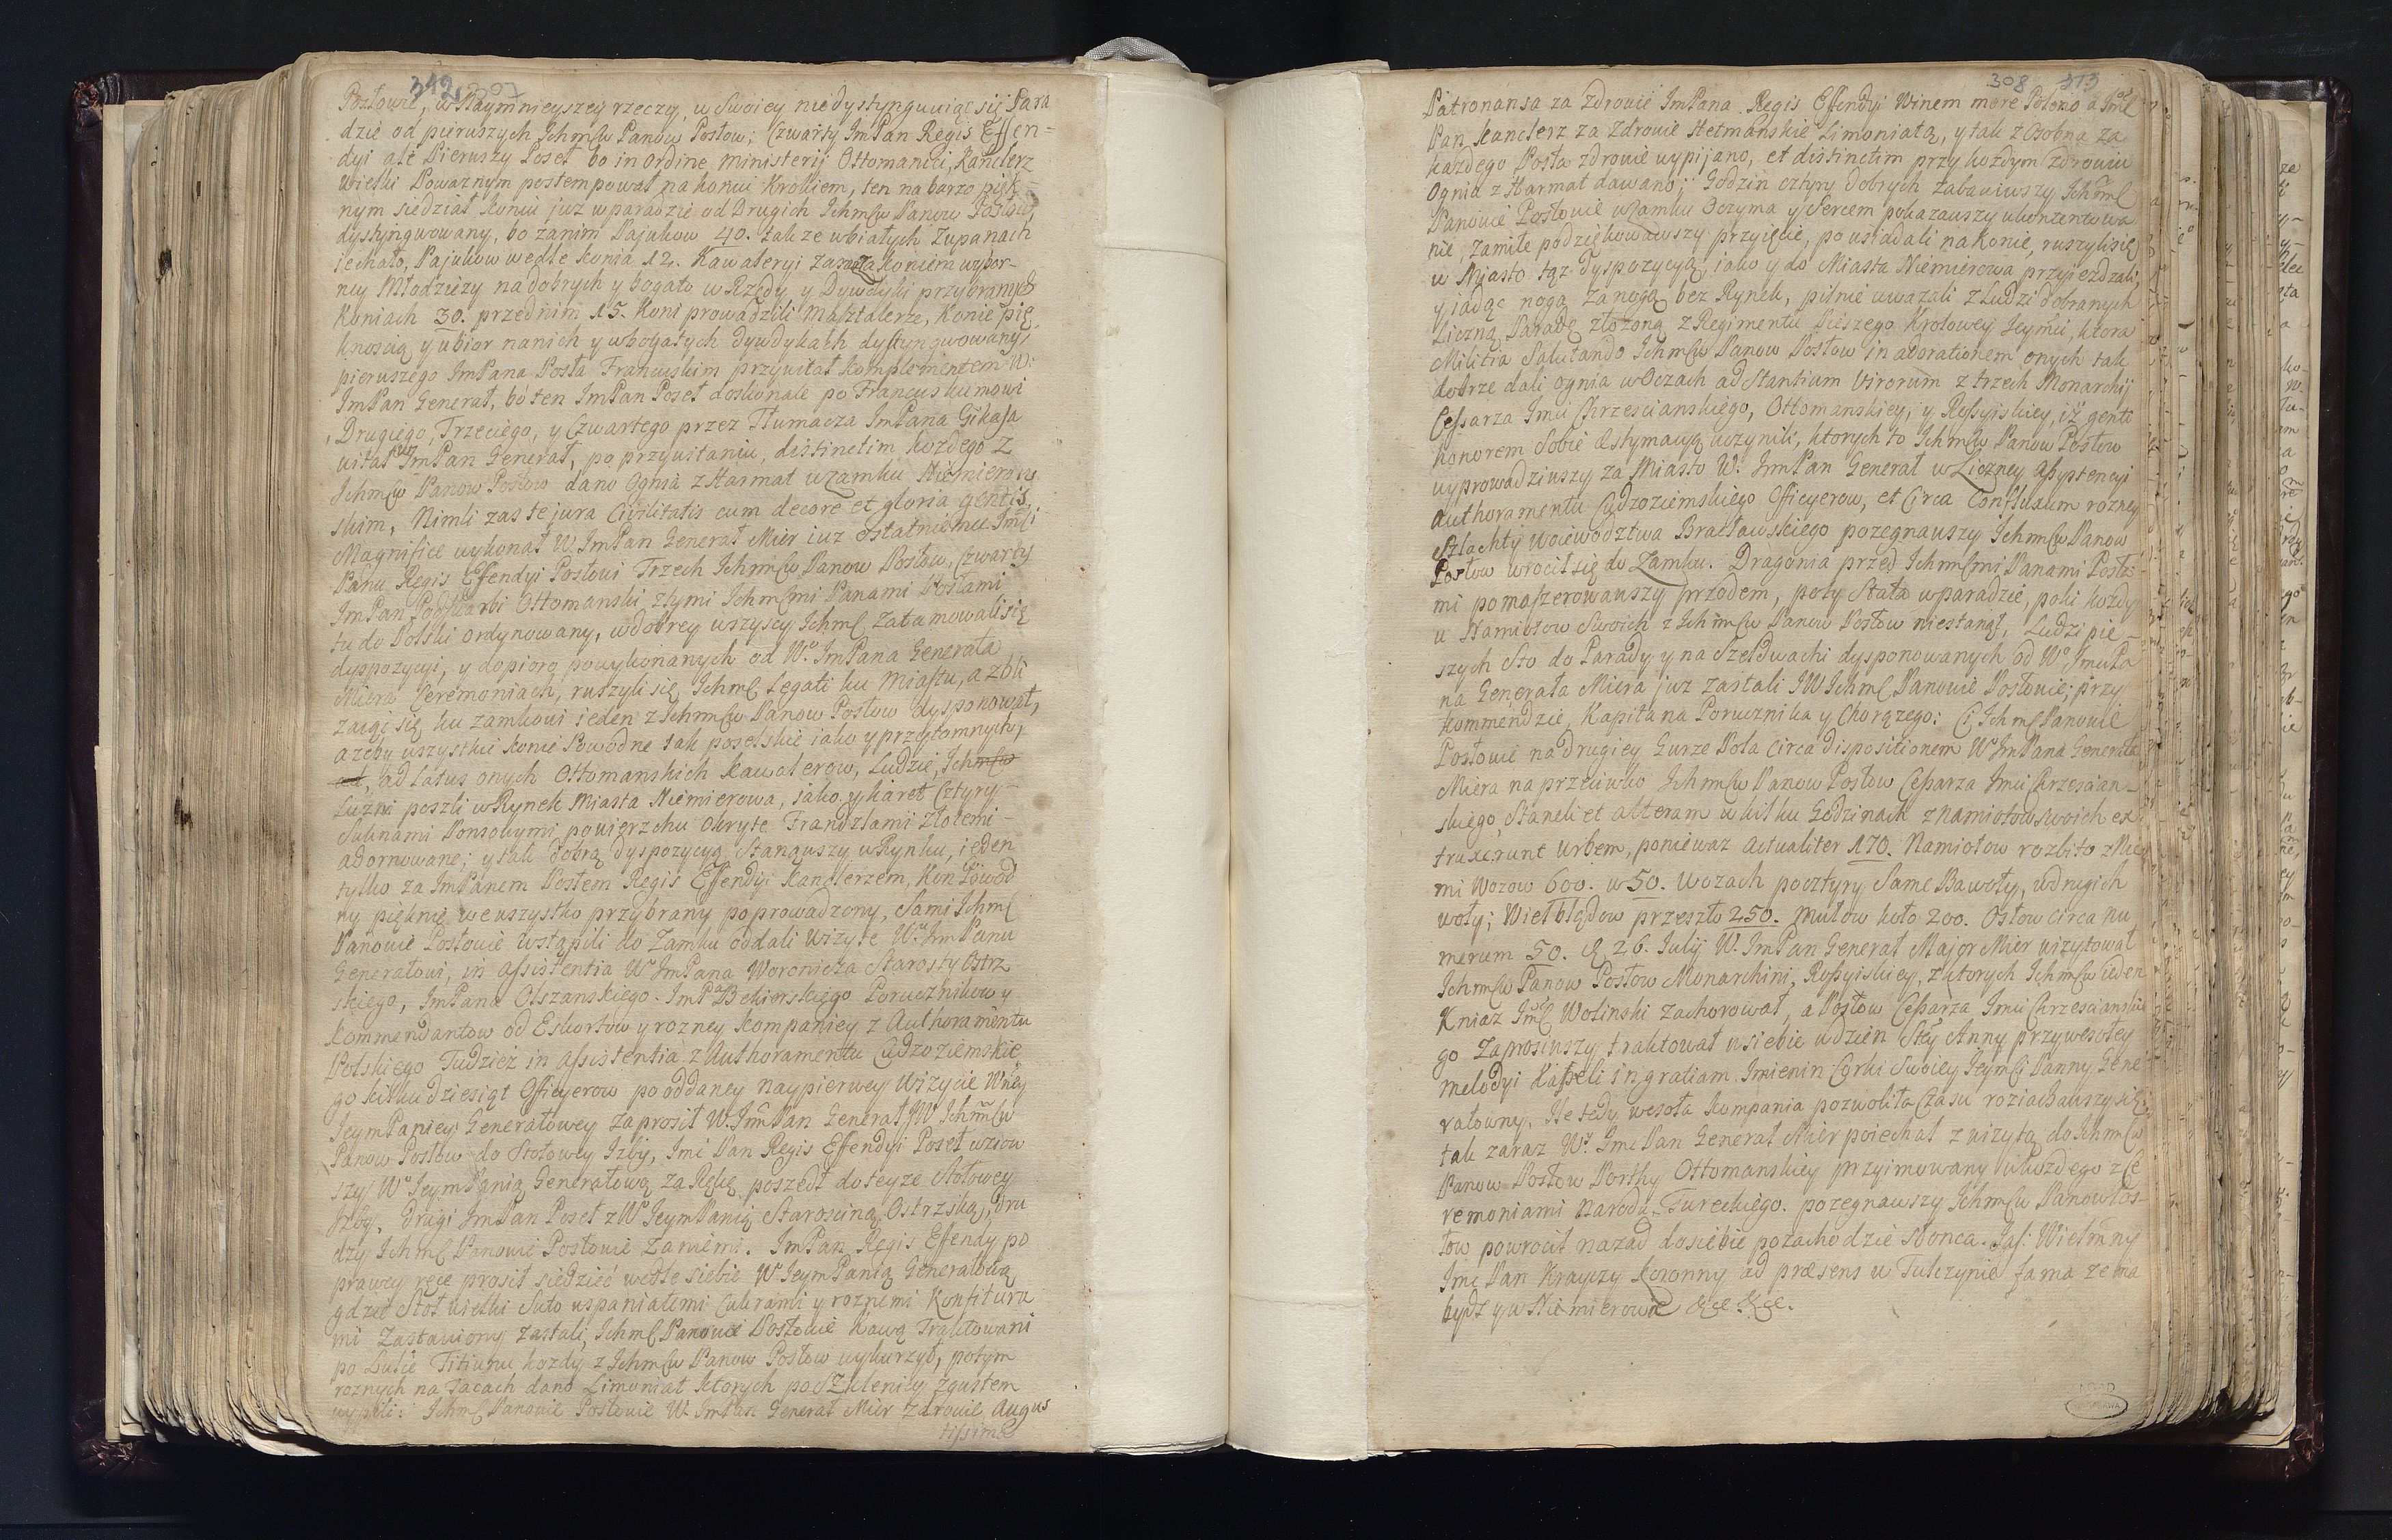 312 307
Posłowie, w Naymnieyszey rzeczy, w Swoiey niedystyngwuiąc się Para
dzie od pierwszych Ichmśw Panow Posłow; Czwarty ImPan Regis Effen-
dyi ale Pierwszy Poseł bo in ordine ministerij Ottomanici, Kanclerz
Wielki Poważnym postempował na koniu Krokiem, ten na barzo pięk
nym siedział koniu już w paradzie od Drugich Ichmśw Panow Posłow,
dystyngwowany, bo za nim Pajukow 40. także w białych Zupanach
iechało, Pajukow wedle konia 12. Kawaleryi zaraz za koniem wybor-
ney Młodzieży na dobrych y bogato w Rzędy y Dywdyki przybranych
Koniach 30. przed nim 15. Koni prowadzili Masztalerze, Konie pię
knoscią y ubior na nich y w bogatych dywdykach dystyngwowany,
pierwszego ImPana Posła Francuskim przywitał komplementem W:
ImPan Generał, bo ten ImPan Poseł doskonale po Francusku mowi
Drugiego, Trzeciego, y Czwartego przez Tłumacza ImPana Gikasa
witał W ImPan Generał, po przywitaniu, distinctim każdego z
Ichmśw Panow Posłow dano Ognia z Harmat w Zamku Niemierow
skim, Nimli zas te jura Civilitatis cum decore et gloria gentis
Magnifice wykonał W. ImPan Generał Mier iuz ostatniemu Imci
Panu Regis Effendyi Posłowi Trzech Ichmśw Panow Posłow, Czwarty
ImPan Podskarbi Ottomanski z tymi Ichmśmi Panami Posłami
tu do Polski ordynowany, w dobrey wszyscy Ichmś Zatamowali się
dyspozycyi, y dopioro po wykonanych od Wo ImPana Generała
Miera Ceremoniach, ruszyli się Ichmś Legati ku Miastu, a zbli
żaiąc się ku zamkowi ieden z Ichmśw Panow Posłow dysponował,
azeby wszystkie konie Powodne tak poselskie iako y przytomnych,
ad latus onych Ottomanskich kawalerow, Ludzie, Ichmśw
Luzni poszli w Rynek Miasta Niemierowa, iako y karet Cztyry
Suknami Ponsowymi powierzchu okryte Frandzlami Złotemi
adornowane; y tak dobrą dyspozycyą Stanąwszy w Rynku, ieden
tylko za ImPanem Posłem Regis Effendyi Kanclerzem, Kon Powod
ny pięknie we wszystko przybrany poprowadzony, Sami Ichmś
Panowie Posłowie wstąpili do Zamku oddali Wizytę Wu ImPanu
Generałowi, in assistentia Wo ImPana Woronicza Starosty Ostrz
skiego, ImPana Olszanskiego ImPa Bekierskiego Porucznikow y
Kommendantow od Eskortow y rozney kompaniey z Authoramentu
Polskiego Tudziez in assistentia z Authoramentu Cudzoziemskie
go kilkudziesiąt Officyerow po oddaney naypierwey Wizycie Wney
JeymPaniey Generałowey zaprosił W. ImPan Generał JW Ichmśw
Panow Posłow do Stołowey Izby, Imć Pan Regis Effendyi Poseł wziow
szy Wo JeymPanią Generałową za Rękę poszedł do teyze Stołowey
Izby. Drugi ImPan Poseł z Wo JeymPanią Staroscina Ostrzską, dru
dzy Ichmś Panowie Posłowie za niemi. ImPan Regis Effendy po
prawey ręce prosił siedzieć wedle siebie W JeymPanią Generałową
gdzie Stoł wielki Suto wspaniałemi Cukrami y roznemi Konfitura
mi Zastawiony zastali, Ichmś Panowie Posłowie kawą Traktowani
po Lulce Titiunu kozdy z Ichmśw Panow Posłow wykurzył, potym
roznych na Tacach dano Limoniat ktorych poł Szklenicy z gustem
wypili: Ichmś Panowie Posłowie W. ImPan Generał Mier Zdrowie Augus
tissime
308 313
Patronansa za zdrowie ImPana Regis Effendyi Winem mere Polono a Imć
Pan Kanclerz za Zdrowie Hetmanskie Limoniatą, y tak z osobna za
kazdego Posła zdrowie wypijano, et distinctim przy kozdym zdrowiu
Ognia z Harmat dawano; Godzin cztyry dobrych zabawiwszy Ichmś
Panowie Posłowie w Zamku Oczyma y Sercem pokazawszy ukontentowa
nie, za mile podziękowawszy przyięcie, powsiadali na Konie, ruszyli się
w Miasto tąz dyspozycyą, iako y do Miasta Niemierowa przyiezdzali,
y iadąc nogą za nogą bez Rynek, pilnie uwazali z Ludzi dobranych
Liczną Paradę złożoną z Regimentu Pieszego Krolowey Jeymci, ktora
Militia Salutando Ichmśw Panow Posłow in adorationem onych tak
dobrze dali ognia w Oczach adstantium Virorum z trzech Monarchij
Cessarza Imci Chrzescianskiego, Ottomanskiey, y Rossyiskiey, iż genti
honorem Sobie Æstymacyą uczynili, ktorych to Ichmśw Panow Posłow
wyprowadziwszy za Miasto W. ImPan Generał w Liczney assystencyi
Authoramentu Cudzoziemskiego Officyerow, et Circa Confluxum rozney
Szlachty Woiewodztwa Bracławskiego pozegnawszy Ichmśw Panow
Posłow wrocił się do Zamku. Dragonia przed Ichmśmi Panami Posła
mi pomaszerowawszy przodem, poty Stała w paradzie, poki kozdy
u Namiotow Swoich z Ichmśw Panow Posłow nie stanął, Ludzi pie
szych Sto do Parady y na Szeldwachi dysponowanych od Wo ImciPa
na Generała Miera już zastali JW Ichmś Panowie Posłowie; przy
kommendzie, Kapitana Porucznika y Chorązego: Ci Ichmś Panowie
Posłowie na drugiey Gurze Pola circa dispositionem Wo ImPana Generała
Miera na przeciwko Ichmśw Panow Posłow Cessarza Imci Chrzescian-
skiego, Staneli et alteram w kilku Godzinach z namiotow swoich ex
truxerunt Urbem, poniewaz actualiter 170. Namiotow rozbito z Nie
mi Wozow 600. w 50. wozach po cztyry Same Bawoły, w drugich
woły; Wielblądow przeszło 250. mułow koło 200. Osłow circa nu
merum 50. D 26. Julij W. ImPan Generał Major Mier wizytował
Ichmśw Panow Posłow Monarchini, Rossyiskiey, z ktorych Ichmśw ieden
Kniaz Imć Wolinski zachorował, a Posłow Cessarza Imci Chrzescianskie
go Zaprosiwszy traktował u siebie w dzien Stey Anny przy wesołey
melodyi Kapeli in gratiam Imienin Corki Swoiey Jeymści Panny Gene
rałowny. Ile tedy wesoła kompania pozwoliła Czasu roziachawszy się
tak zaraz W. Imc Pan Generał Mier poiechał z wizytą do Ichmśw
Panow Posłow Porthy Ottomanskiey przyimowany u kozdego z Ce
remoniami Narodu Tureckiego. pozegnawszy Ichmśw Panow Pos-
łow powrocił nazad do siebie po zachodzie Słonca. Jaś: Wielmny
Imc Pan Krayczy Koronny ad præsens w Tulczynie fama ze ma
bydź y w Niemierowie &ce &ce.